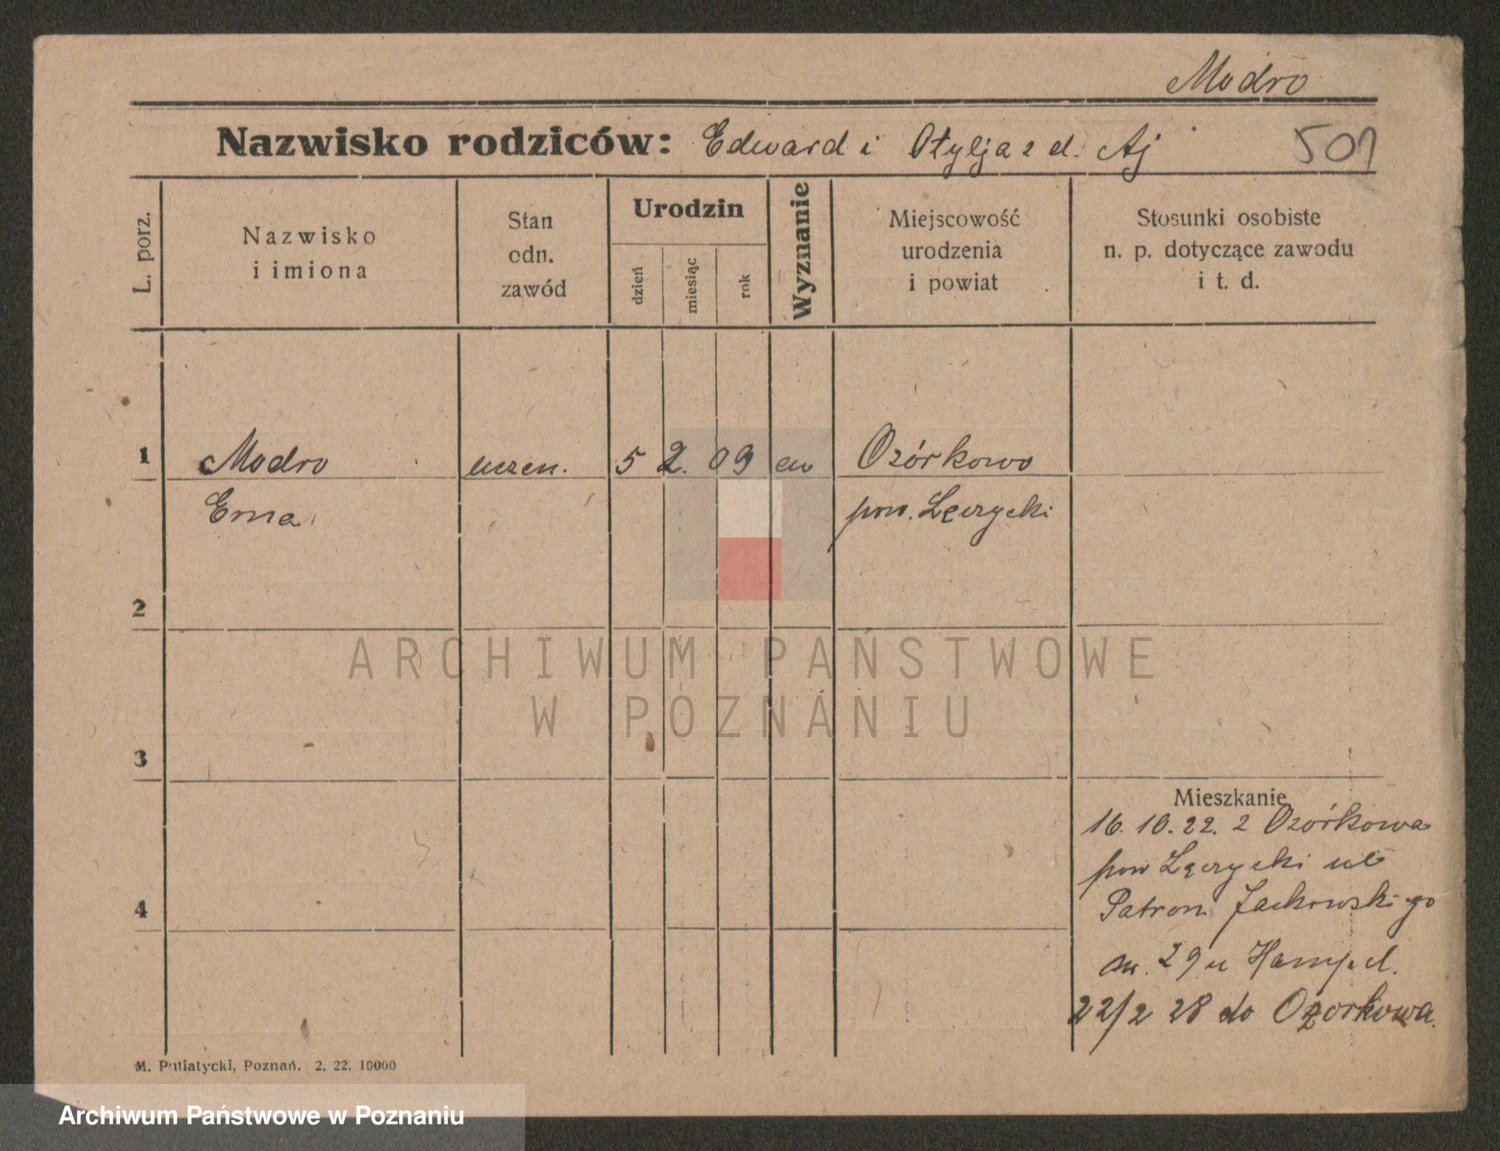 Modro
Nazwisko rodziców: Edward i Otylja z d. Aj
501
L. porz.
Nazwisko
i imiona
Stan
odn.
zawód
Urodzin
dzień
miesiąc
rok
Wyznanie
Miejscowość
urodzenia
i powiat
Stosunki osobiste
n. p. dotyczące zawodu
i t. d.
1 Modro uczen. 5 2. 09 ew Ozórkowo
Erna pow. Łęczycki
2
ARCHIWUM PAŃSTWOWE
W POZNANIU
3
Mieszkanie
16. 10. 22. z Ozórkowa
pow Łęczycki ul
4
Patron Jackowskiego
nr. 29 u Hampel.
22/2 28 do Ozorkowa.
M. Putiatycki, Poznań. 2. 22. 10000
Archiwum Państwowe w Poznaniu